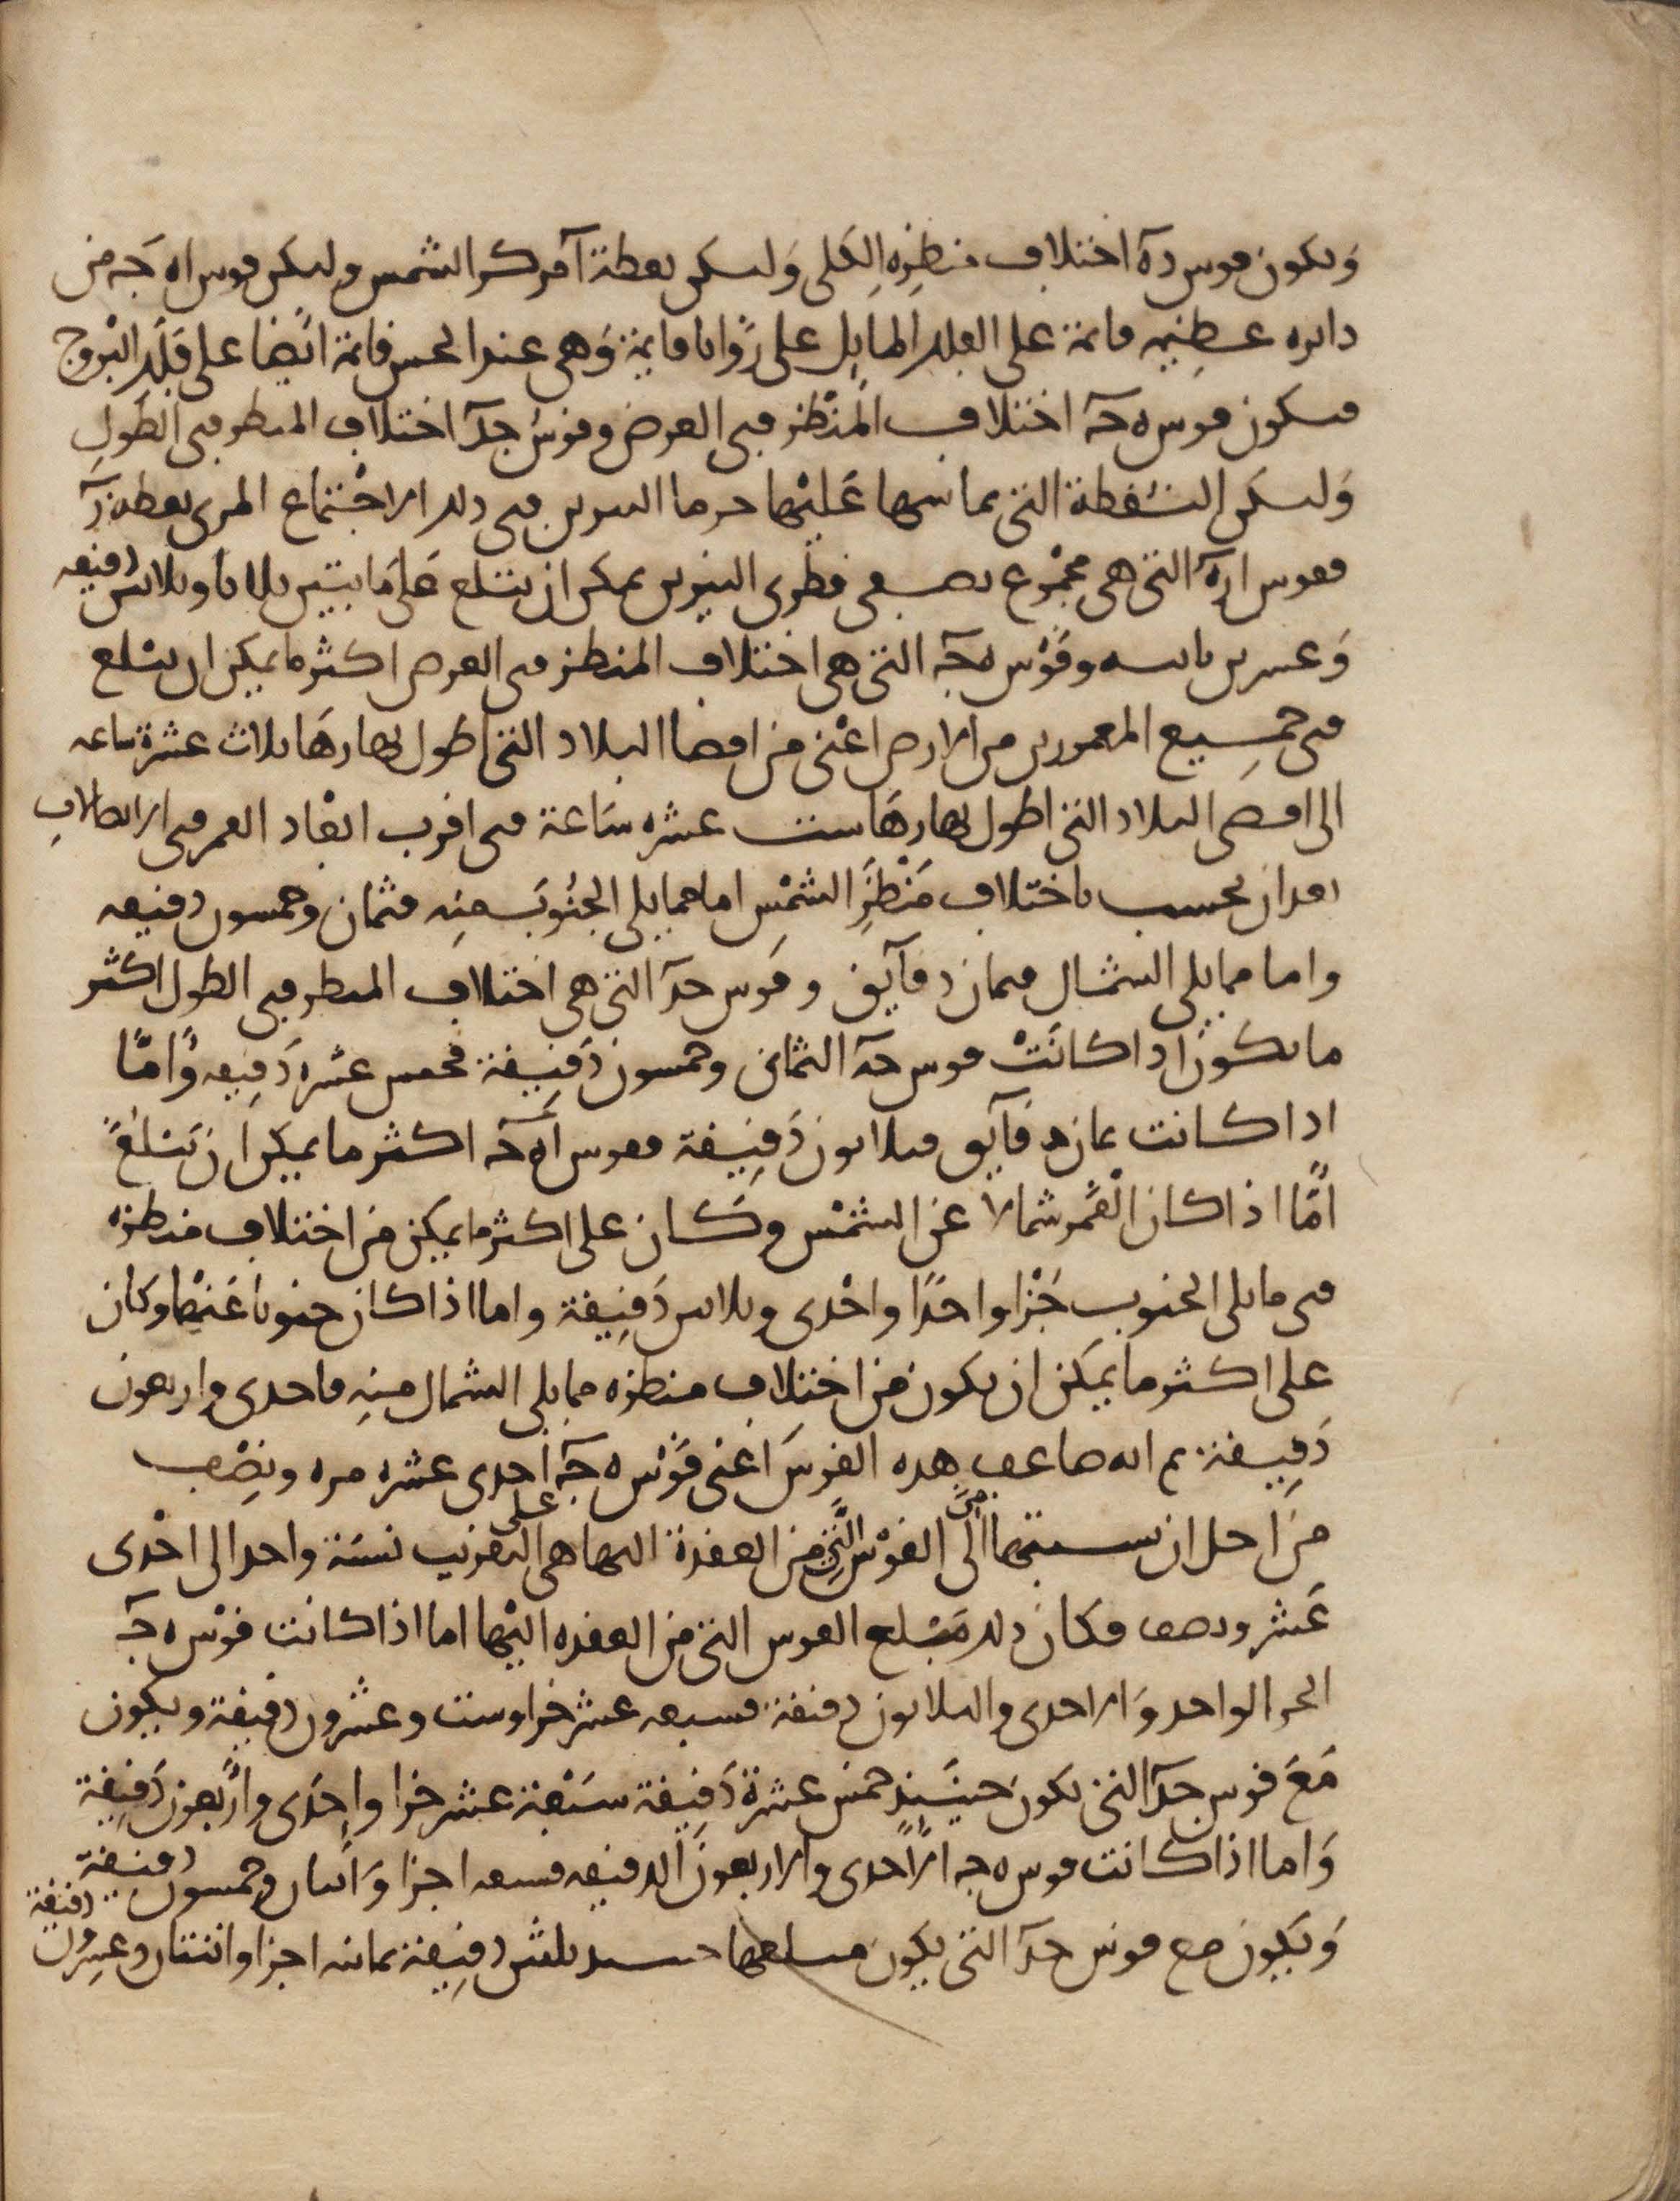 وتكون قوس دآ اختلاف منظره الكلي ولتكن نقطة آ مركز الشمس ولتكن قوس اه جه من
دائرة عظيمة قائمة على الفلك المايل على زوايا قايمة وهي عند الحس قائمة ايضا على فلك البروج
فتكون قوس ه جه اختلاف المنظر في العرض وقوس جدآ اختلاف المنظر في الطول
ولتكن النقطة التي يماسها عليها جرما النيرين في ذلك الاجتماع المرى نقطة زآ
فقوس ازه التي هي مجموع نصفي قطري النيرين يمكن ان تبلغ على ما بيّن ثلاثا وثلاثين دقيقه
وعشرين ثانيه وقوس ه جه التي هي اختلاف المنظر في العرض اكثر ما يمكن ان تبلغ
في جميع المعمورين من الارض اعني من اقصا البلاد التي اطول نهارها ثلاث عشرة ساعه
الى اقصى البلاد التي اطول نهارها ست عشره ساعة في اقرب ابعاد القمر في الاتصالات
بعد ان يحسب باختلاف منظر الشمس اما مما يلي الجنوب منه فثمان وخمسون دقيقه
واما مما يلي الشمال فثمان دقآيق وقوس جدآ التي هي اختلاف المنظر في الطول اكثر
ما تكون اذا كانت قوس جه الثماني وخمسون دقيقة فخمس عشره دقيقه وامّا
اذا كانت ثمان دقآيق فثلاثون دقيقة فقوس آه جه اكثر ما يمكن ان تبلغ
امّا اذا كان القمر شمالا عن الشمس وكان على اكثر ما يمكن من اختلاف منظره
في ما يلي الجنوب جزا واحدا واحدى وثلاثين دقيقة واما اذا كان جنوبا عنها وكان
على اكثر ما يمكن ان يكون من اختلاف منظره مما يلي الشمال منه فاحدى واربعون
دقيقة ثم انه ضاعف هذه القوس اعني قوس ه جه احدى عشره مره ونصف
من اجل ان نسبتها الى القوس التي من العقدة اليها هي على التقريب نسبة واحد الى احدى
عشر ونصف فكان ذلك مبلغ القوس التي من العقده اليها اما اذا كانت قوس ه جه
الجز الواحد والاحدى والثلاثون دقيقة فسبعه عشر جزا وست وعشرون دقيقة ويكون
مع قوس جدآ التي تكون حينئيذ خمس عشرة دقيقة سبعة عشر جزا واحدى واربعون دقيقة
واما اذا كانت قوس ه جه الاحدى والاربعون الدقيقه فسبعه اجزا واثنان وخمسون دقيقة
ويكون مع قوس جدآ التي يكون مبلغها حينئذ ثلثين دقيقة ثمانيه اجزا واثنتان وعشرون دقيقة